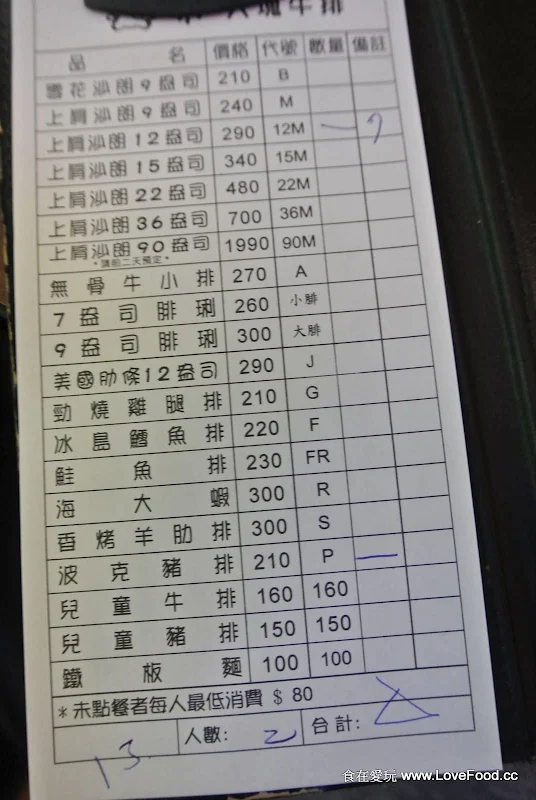 大塊牛排
品名 價格 代號 數量 備註
雪花沙朗9盎司 210 B
上肩沙朗9盎司 240 M
上肩沙朗12盎司 290 12M 一 7
上肩沙朗15盎司 340 15M
上肩沙朗22盎司 480 22M
上肩沙朗36盎司 700 36M
上肩沙朗90盎司 1990 90M
*請前二天預定*
無骨牛小排 270 A
7盎司腓琍 260 小腓
9盎司腓琍 300 大腓
美國肋條12盎司 290 J
勁燒雞腿排 210 G
冰島鱈魚排 220 F
鮭魚排 230 FR
海大蝦 300 R
香烤羊肋排 300 S
波克豬排 210 P 一
兒童牛排 160 160
兒童豬排 150 150
鐵板麵 100 100
*未點餐者每人最低消費 $ 80
13 人數: 2 合計:
食在愛玩 www.LoveFood.cc